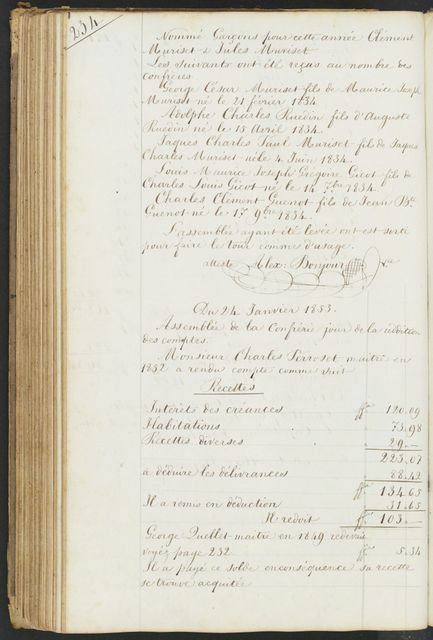 234
Nommé Garçons pour cette année Clément
Muriset & Jules Muriset
Les suivants ont été reçus au nombre des
confrères
George César Muriset fils de Maurice Joseph
Muriset né le 21 février 1834.
Adolphe Charles Ruedin fils d'Auguste
Ruedin né le 15 Avril 1834.
Jaques Charles Paul Muriset fils de Jaques
Charles Muriset né le 4 Juin 1834.
Louis Maurice Joseph Grégoire Gicot fils de
Charles Louis Gicot né le 14 7bre 1834.
Charles Clément Guenot fils de Jean Bte
Guenot né le 17 9bre 1834.
L'assemblée ayant été levée on est sorti
pour faire le tour comme d'usage.
atteste Alex: Bonjour
Du 24 Janvier 1853.
Assemblée de la Confrérie jour de la reddition
des comptes.
Monsieur Charles Perroset maitre en
1852 a rendu compte comme suit
Recettes
Intérêts des créances ff. 120.09
Habitations 73.98
Recettes diverses 29.—
223.07
à déduire les délivrances 88.42
ff. 134.65
Il a remis en déduction 31.65
Il redoit ff. 103.—
George Quellet maitre en 1849 redevait
voyez page 232 ff. 5.34
Il a payé ce solde en conséquence sa recette
se trouve acquitée